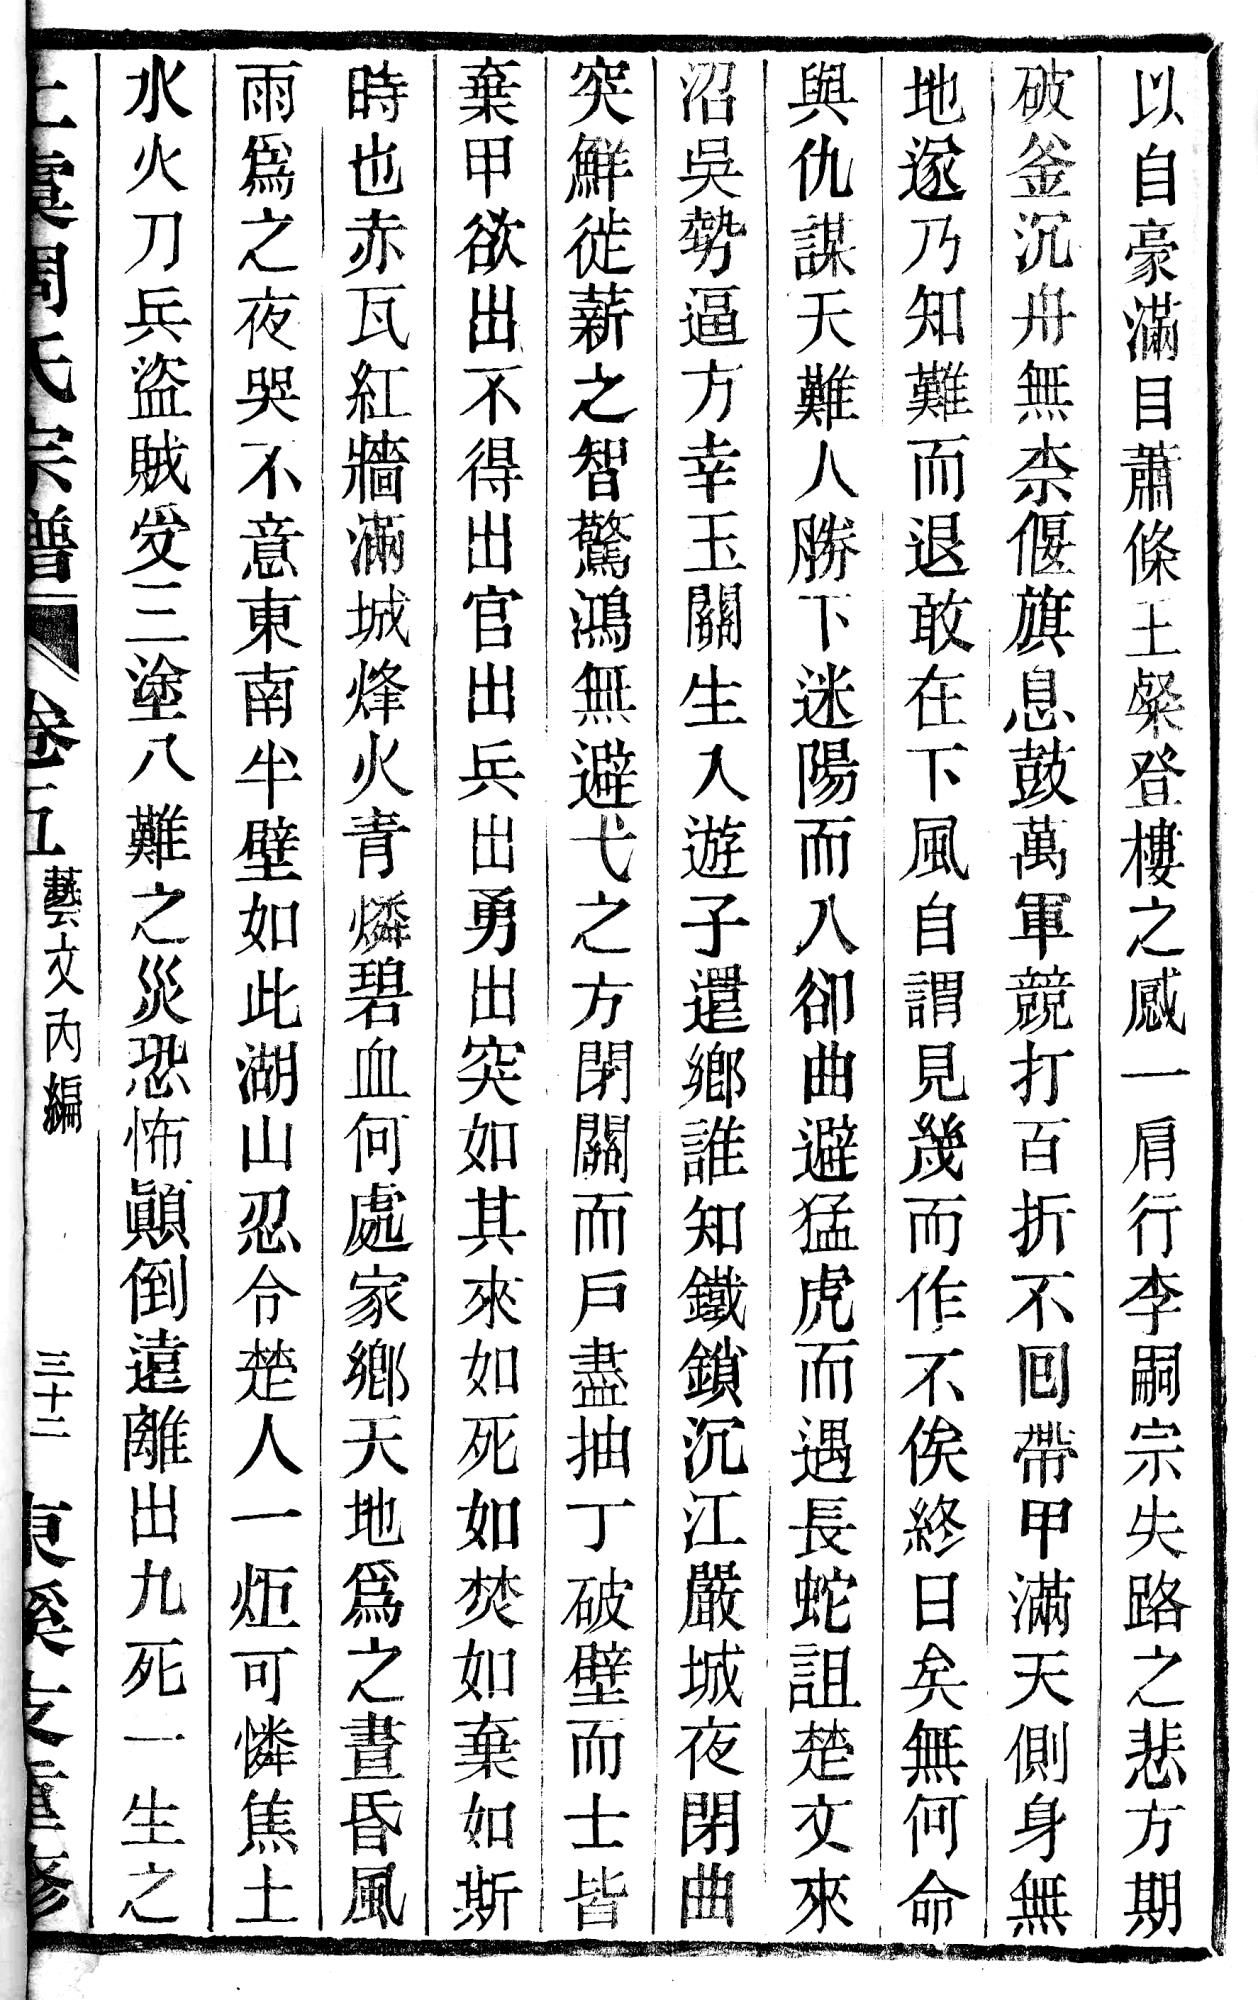 以自豪滿目蕭條王粲登樓之感一肩行李嗣宗失路之悲方期
破釜沉舟無柰偃旗息鼓萬軍競打百折不回帶甲滿天側身無
地遂乃知難而退敢在下風自謂見幾而作不俟終日矣無何命
與仇謀天難人勝下迷陽而入卻曲避猛虎而遇長蛇詛楚文來
沼吳勢逼方幸玉關生入遊子還鄉誰知鐵鎖沉江嚴城夜閉曲
突鮮徙薪之智驚鴻無避弋之方閉關而戶盡抽丁破壁而士皆
棄甲欲出不得出官出兵出勇出突如其來如死如焚如棄如斯
時也赤瓦紅牆滿城烽火青燐碧血何處家鄉天地爲之晝昏風
雨爲之夜哭不意東南半壁如此湖山忍令楚人一炬可憐焦土
水火刀兵盜賊受三塗八難之災恐怖顚倒遠離出九死一生之
上虞周氏宗譜 卷五 藝文內編 三十二 東溪支重修